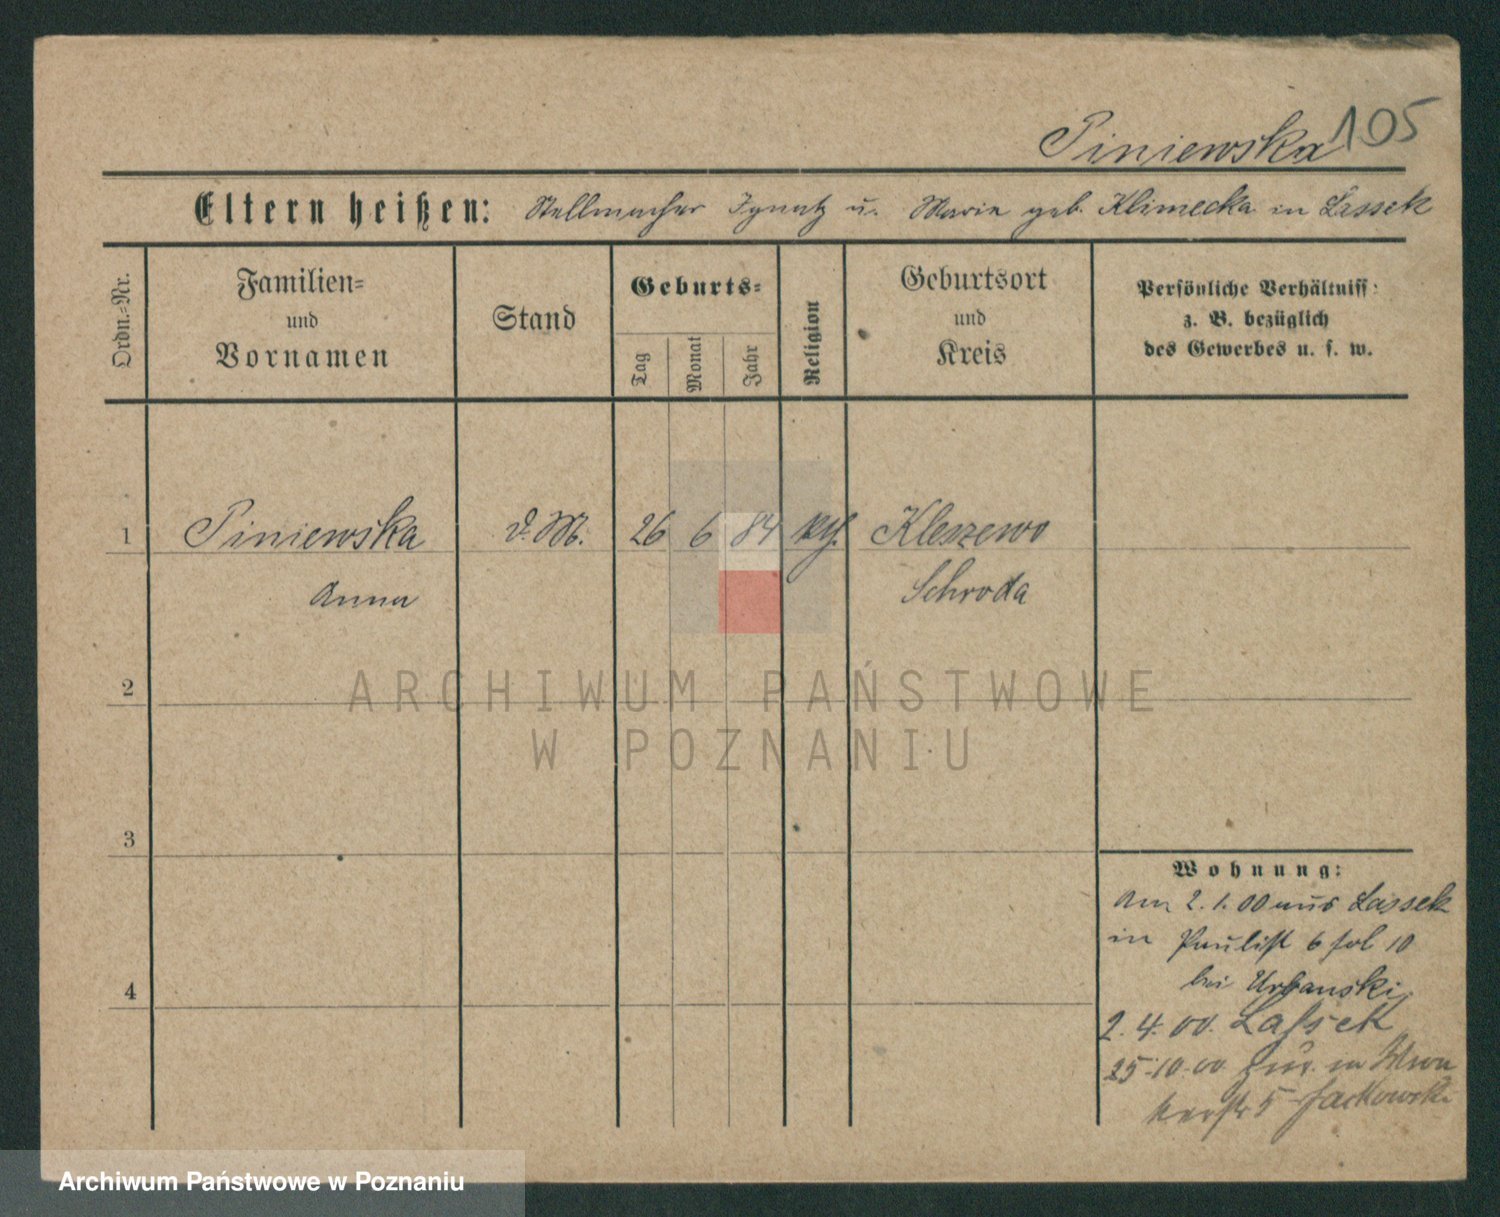 Piniewska 105
Eltern heißen: Stellmacher Ignatz u. Marie geb. Klimecka in Lassek
Ordn.-Nr.
Familien-
und
Vornamen
Stand
Geburts-
Tag
Monat
Jahr
Religion
Geburtsort
und
Kreis
Persönliche Verhältniss:
z. B. bezüglich
des Gewerbes u. s. w.
1 Piniewska d. M. 26 6 84 kth. Kleszewo
Anna Schroda
2
ARCHIWUM PAŃSTWOWE
W POZNANIU
3
Wohnung:
Am 2. 1. 00 aus Lassek
in Paulist 6 fol 10
4
bei Urbanski
2. 4. 00. Lassek
25-10-00 zur. in
5 Jackowski
Archiwum Państwowe w Poznaniu